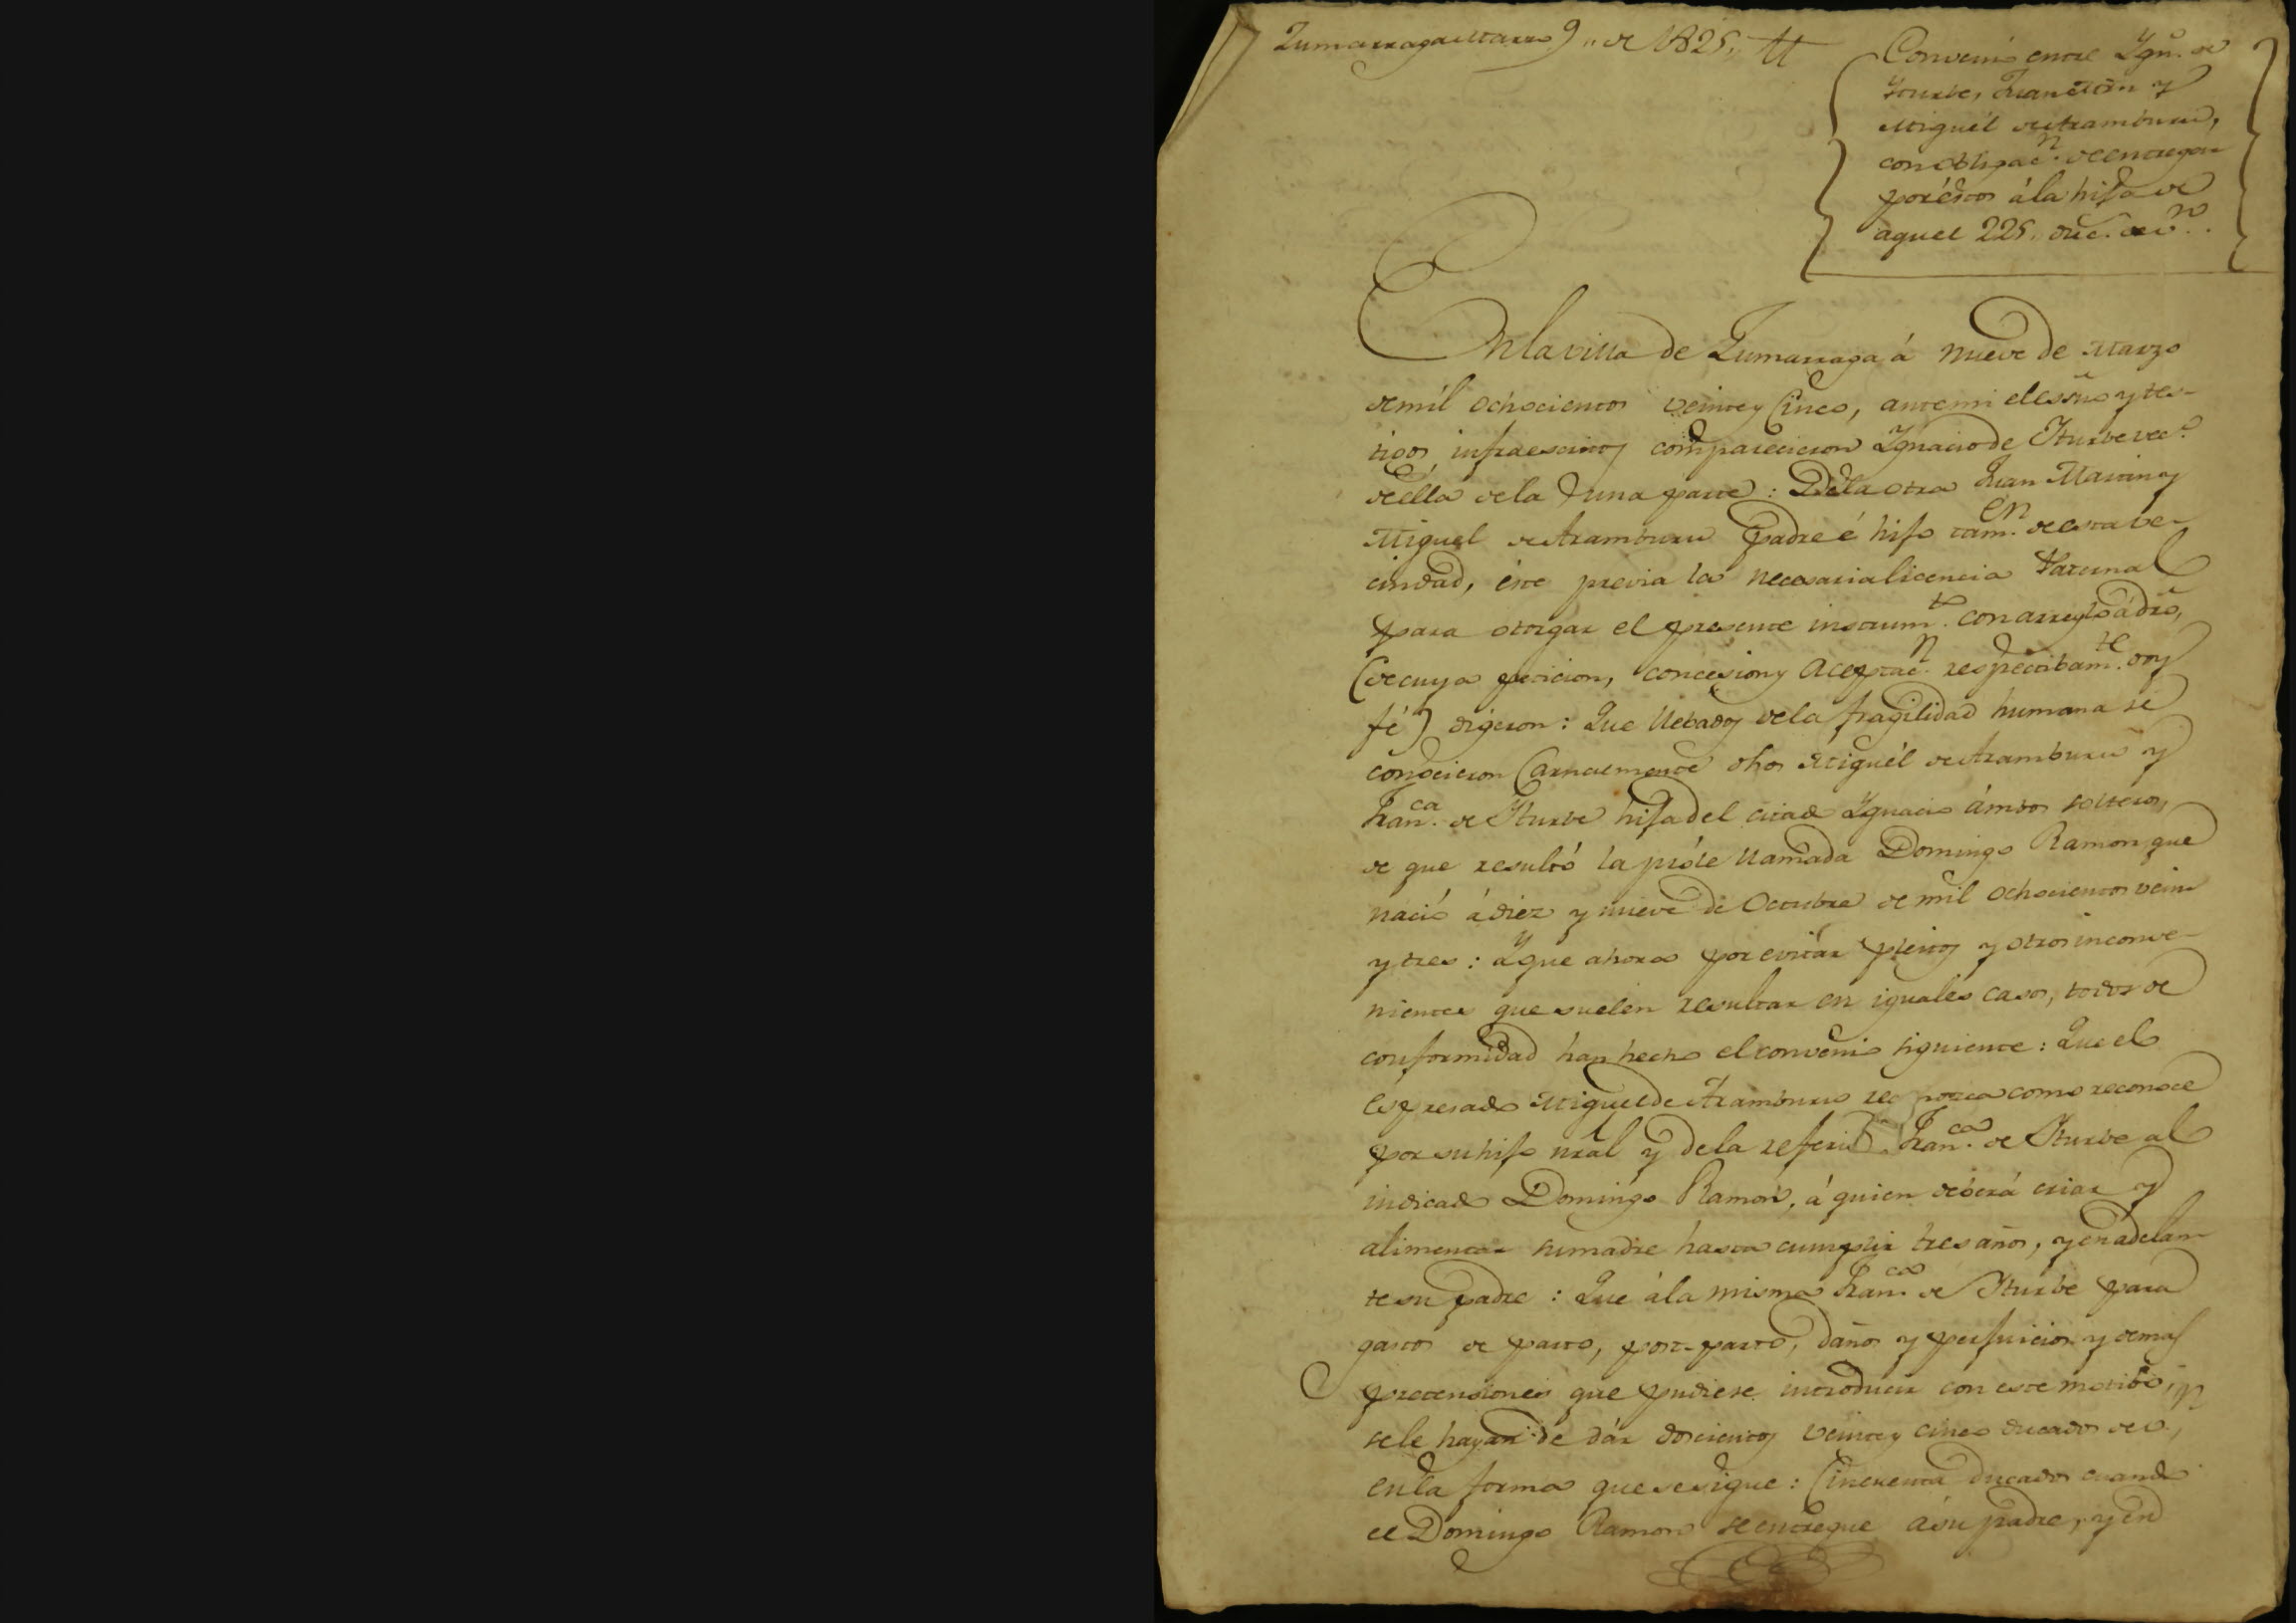 Zumarraga Marzo 9,, de 1825,,
Convenio entre Ygno. de
Yturbe, Juan Mrn. y
Miguél de Aramburu,
con obligacn. de entregar
por éstos á la hija de
aquel 225. duc.s de vn..
En la villa de Zumarraga á nueve de Marzo
de míl ochocientos veinte y Cinco, ante mi el essno y tes-
tigos infraescritos comparecieron Ygnacio de Yturbe vecº.
de élla de la una parte: De la otra Juan Martin y
Miguel de Aramburu Padre é hijo tamen. de esta ve-
cindad, éste previa la necesaria licencia Paternal
para otorgar el presente instrumto. con arreglo á dro,
(de cuya peticion, concesion y aceptacn. respectibamte. doy
fé) digeron: Que llebados de la fragilidad humana se
conocieron Carnalmente dhos Miguél de Aramburu y
Franca. de Yturbe hija del citado Ygnacio ámbos solteros,
de que resultó la próle llamada Domingo Ramon que
nació á diez y nueve de Octubre de mil ochocientos vein
y tres: Y que ahora por evitar pleitos y otros inconve-
nientes que suelen resultar en iguales casos, todos de
conformidad han hecho el convenio siguiente: Que el
espresado Miguel de Aramburu reconozca como reconoce
por su hijo nral y de la referida Franca. de Yturbe al
indicado Domingo Ramon, á quien deberá criar y
alimentar su madre hasta cumplir tres años, y en adelan-
te su padre: Que á la misma Franca. de Yturbe para
gastos de parto, post-parto, daños y perjuicios y demas
pretensiones que pudiese introducir con este motibo,
se le hayan de dár doscientos veinte y cinco ducados de vn.,
en la forma que se sigue: Cincuenta ducados cuando
el Domingo Ramon se entregue á su padre, y en